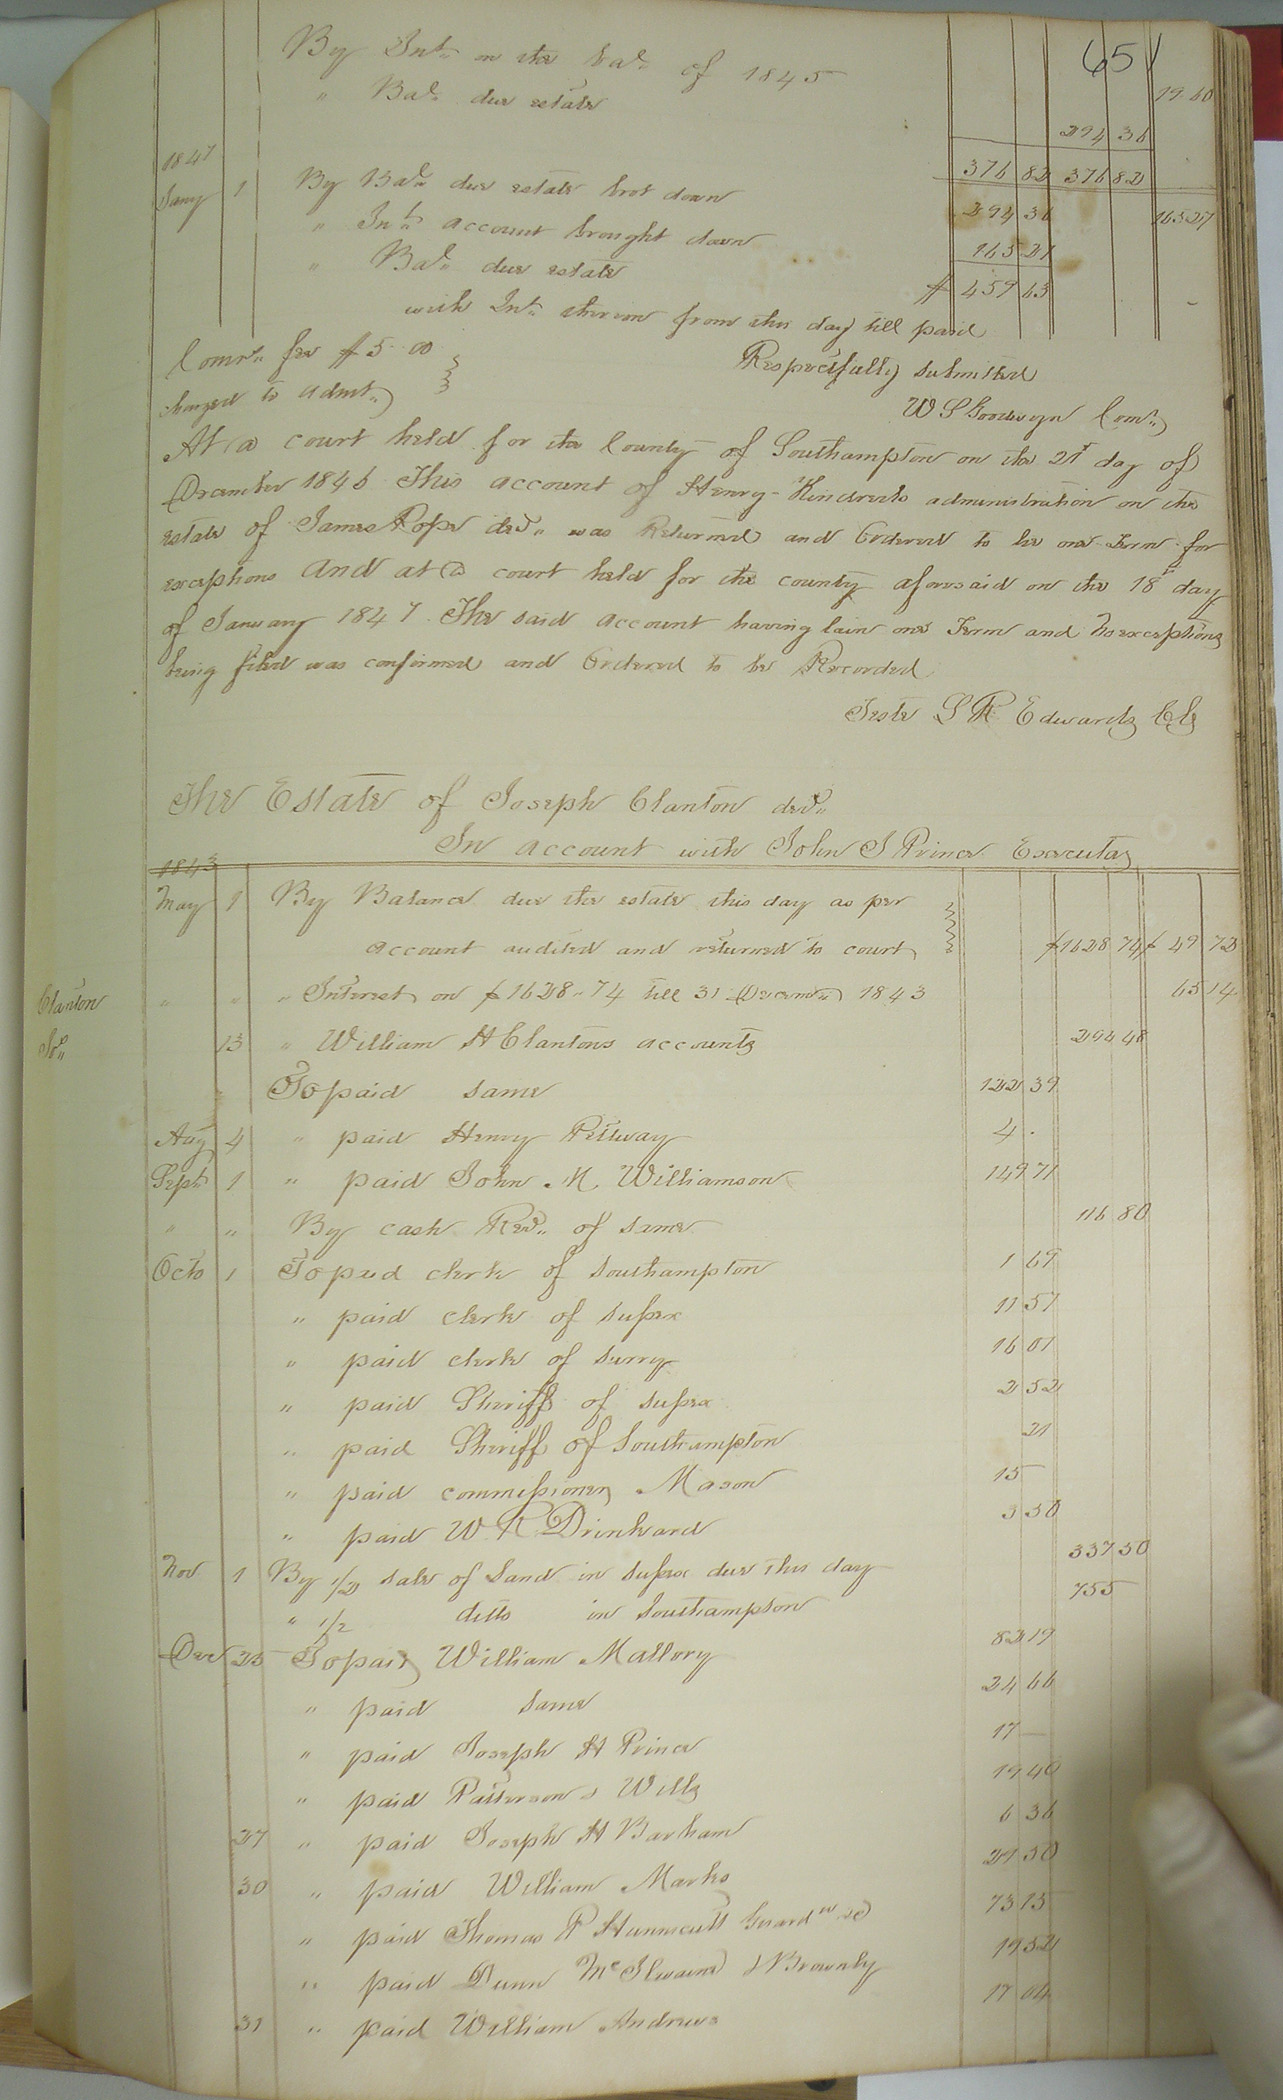 651
By Int. on the bal. of 1845 19 60
" Bal. due estate 294 36
376 82 376 82
1847
Jany 1 By Bal. due estate brot down 294 36 165 27
" Int. account brought down 165 27
" Bal. due estate $ 459 63
with Int. thereon from this day till paid
Comrs. fee $5.00
charged to admt.
Respectfully submitted
W S Goodwyn Comr.
At a court held for the County of Southampton on the 21st day of
December 1846 This account of Henry Kindreds administration on the
estate of James Pope decd. was Returned and Ordered to lie one Term for
exceptions and at a court held for the county aforesaid on the 18th day
of January 1847. The said account having lain one Term and no exceptions
being filed was confirmed and Ordered to be Recorded
Teste L R Edwards Clk
The Estate of Joseph Clanton decd.
In account with John S Prince Executor
1843
May 1 By Balance due the estate this day as per
account audited and returned to court $1628 74 $ 49 72
Clanton " " " Interest on $1628.74 till 31 Decemr. 1843 65 14
Jos. 13 " William H Clantons accounts 294 48
To paid same 122 39
Aug 4 " paid Henry Pettway 4 .
Sept 1 " paid John M Williamson 149 71
" " By cash Recd. of same 116 80
Octo 1 To paid clerk of Southampton 1 69
" paid clerk of Sussex 11 57
" paid clerk of Surry 16 01
" paid Sheriff of Sussex 2 52
" paid Sheriff of Southampton 21
" paid commissioner Mason 15
" paid W R Drinkard 3 50
Nov 1 By 1/2 sale of Land in Sussex due this day 337 50
" 1/2 ditto in Southampton 755
Dec 25 To paid William Mallory 82 19
" paid same 24 66
" paid Joseph H Prince 17
" paid Patterson & Wells 19 40
27 " paid Joseph H Barham 6 36
30 " paid William Marks 29 50
" paid Thomas P Hunnicutt Guardn &c 73 15
" paid Dunn McIlwaine & Brownly 19 52
31 " paid William Andrews 17 04